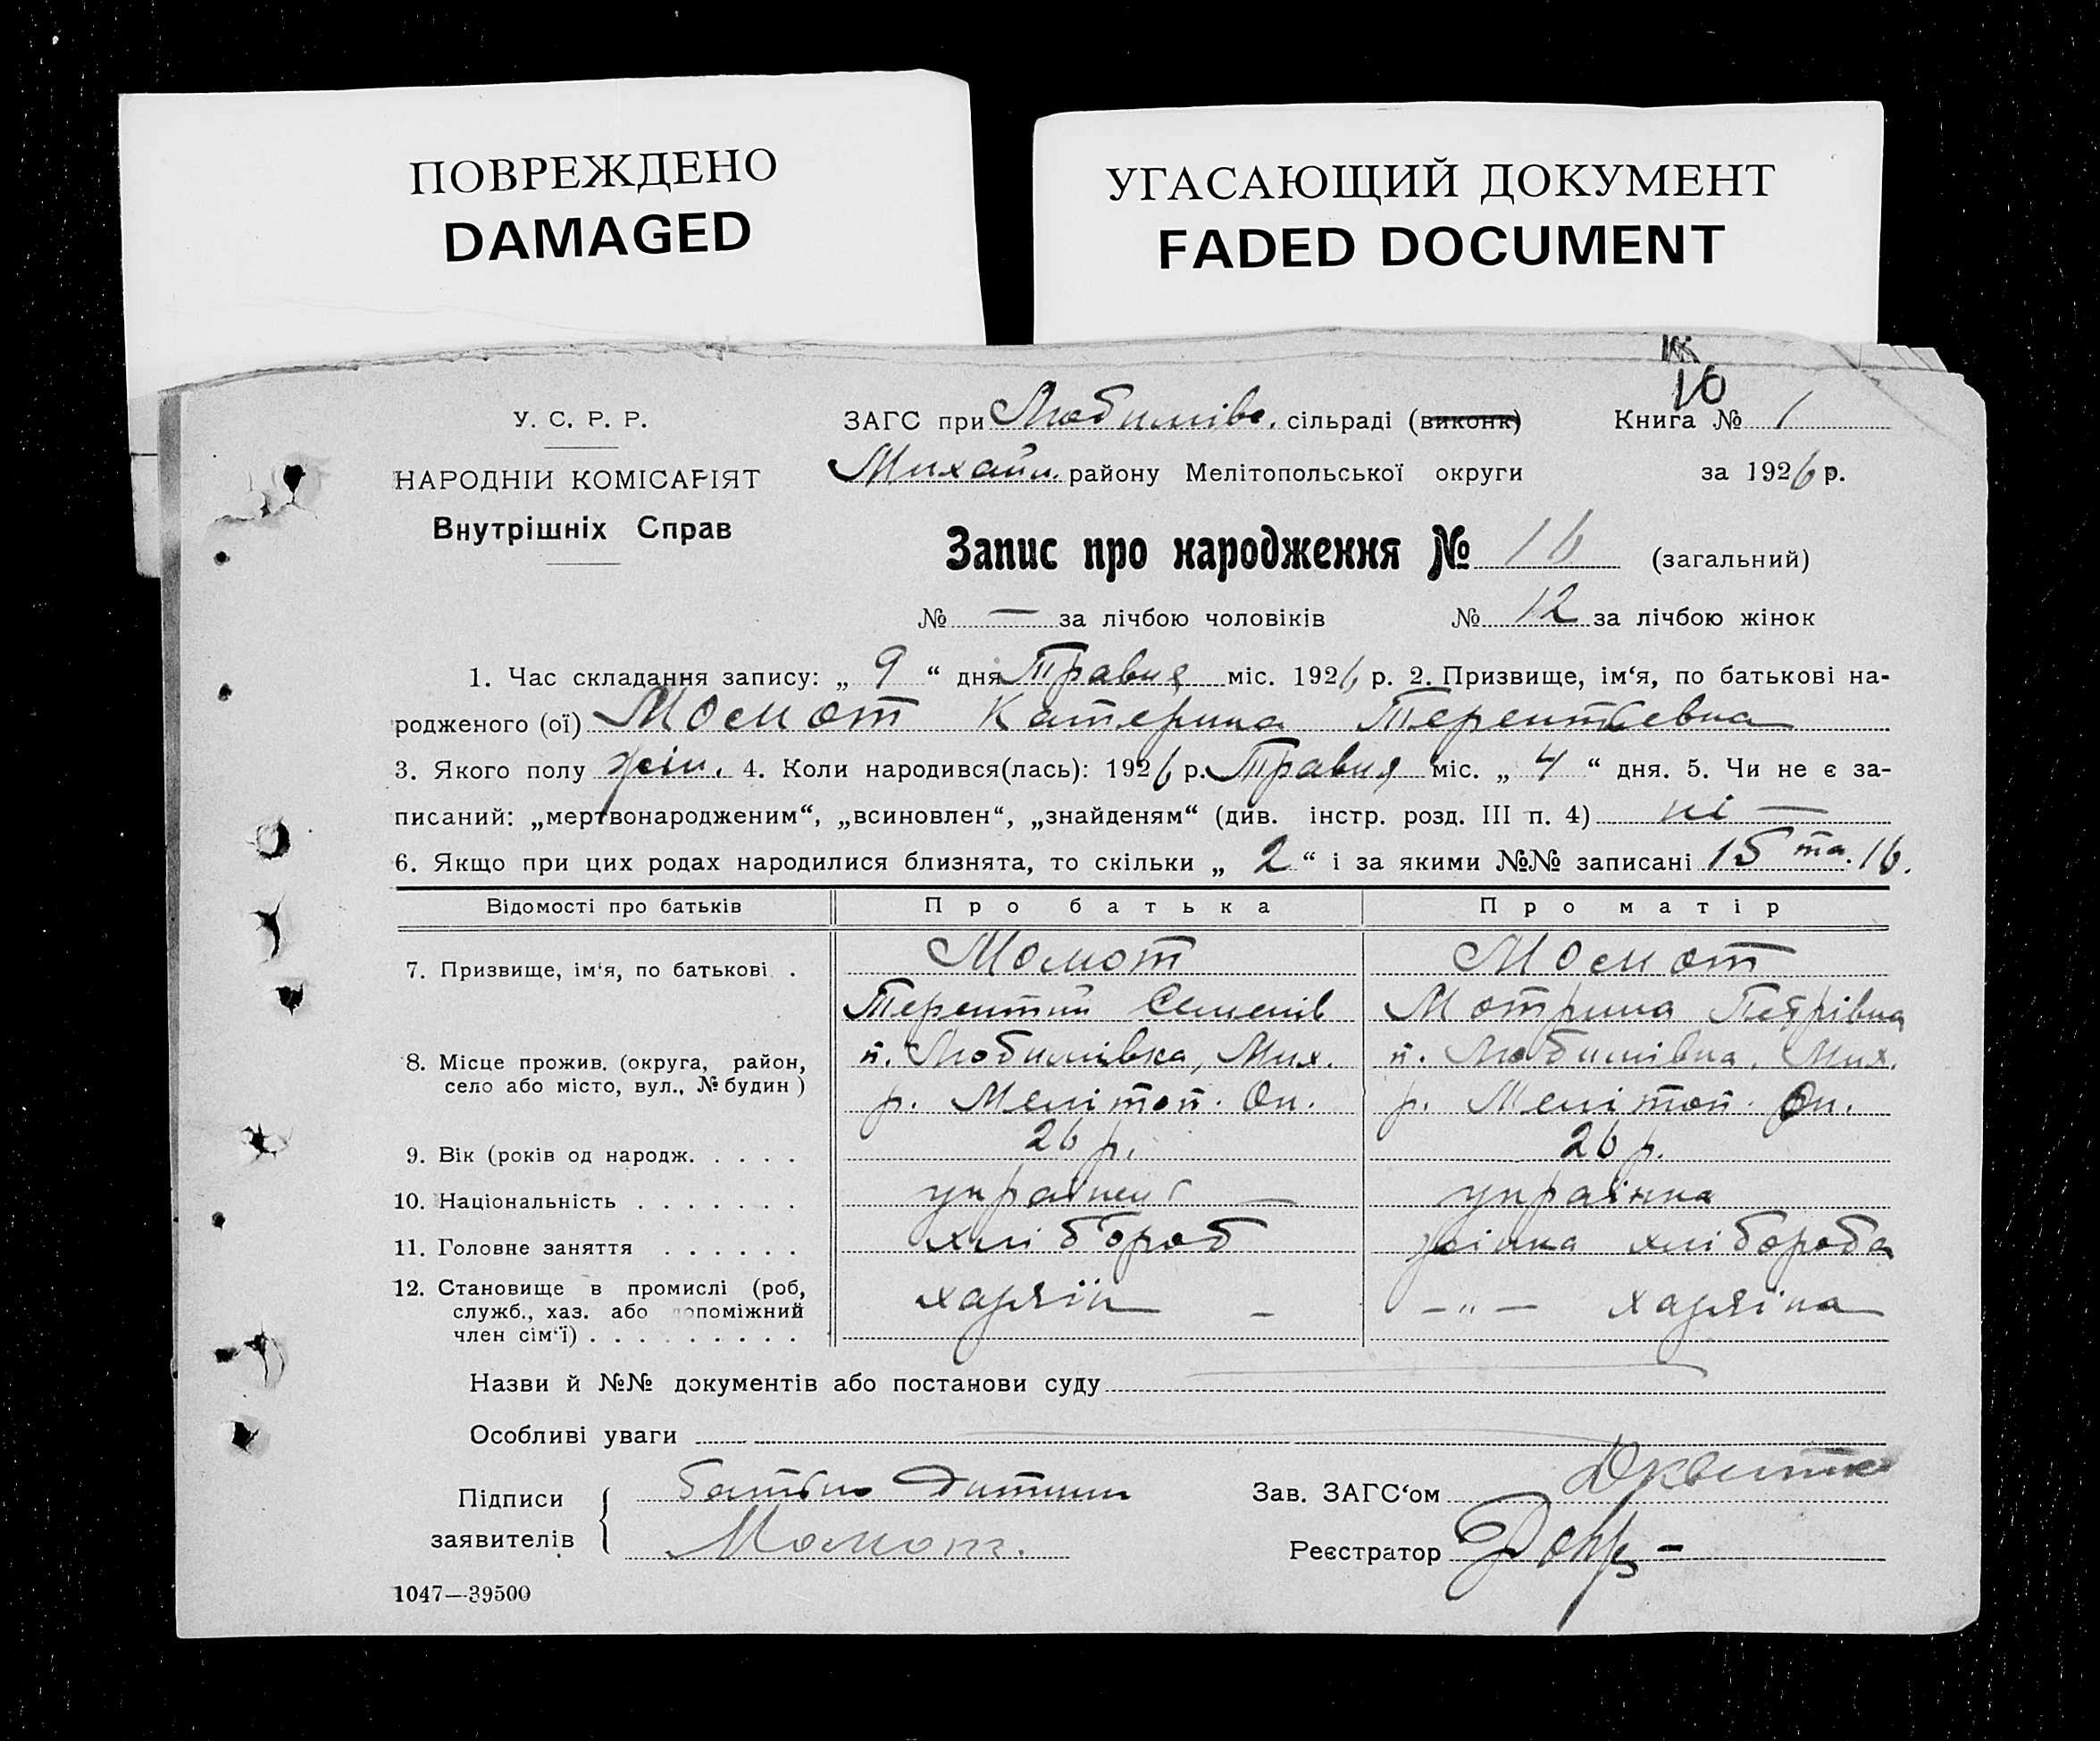 ПОВРЕЖДЕНО
DAMAGED
УГАСАЮЩИЙ ДОКУМЕНТ
FADED DOCUMENT
10
У. С. Р. Р.
НАРОДНІЙ КОМІСАРІЯТ
Внутрішніх Справ
ЗАГС при Любимівс. сільраді (виконк) Книга № 1
Михайл. району Мелітопольської округи за 1926 р.
Запис про народження № 16 (загальний)
№ — за лічбою чоловіків № 12 за лічбою жінок
1. Час складання запису: „ 9 “ дня Травня міс. 1926 р. 2. Призвище, ім‘я, по батькові на-
родженого (ої) Момот Катерина Терентьевна
3. Якого полу жін. 4. Коли народився(лась): 1926 р. Травня міс. „ 4 “ дня. 5. Чи не є за-
писаний: „мертвонародженим“, „всиновлен“, „знайденям“ (див. інстр. розд. III п. 4) ні —
6. Якщо при цих родах народилися близнята, то скільки „ 2 “ і за якими №№ записані 15 та. 16.
Відомості про батьків Про батька Про матір
7. Призвище, ім‘я, по батькові . Момот Момот
Терентий Семенів Мотрина Петрівна
8. Місце прожив. (округа, район, п. Любимівка, Мих. п. Любимівка, Мих.
село або місто, вул., № будин ) р. Мелітоп. Ок. р. Мелітоп. Ок.
9. Вік (років од народж. . . . . 26 р. 26 р.
10. Національність . . . . . . . українец — українка
11. Головне заняття . . . . . . хлібороб жінка хлібороба
12. Становище в промислі (роб,
служб., хаз. або допоміжний хазяїн — - — „ — хазяїна
член сім‘ї) . . . . . . . . . .
Назви й №№ документів або постанови суду
Особливі уваги
Підписи батько Дитини Зав. ЗАГС‘ом
заявителів Момот. Реєстратор
1047—39500